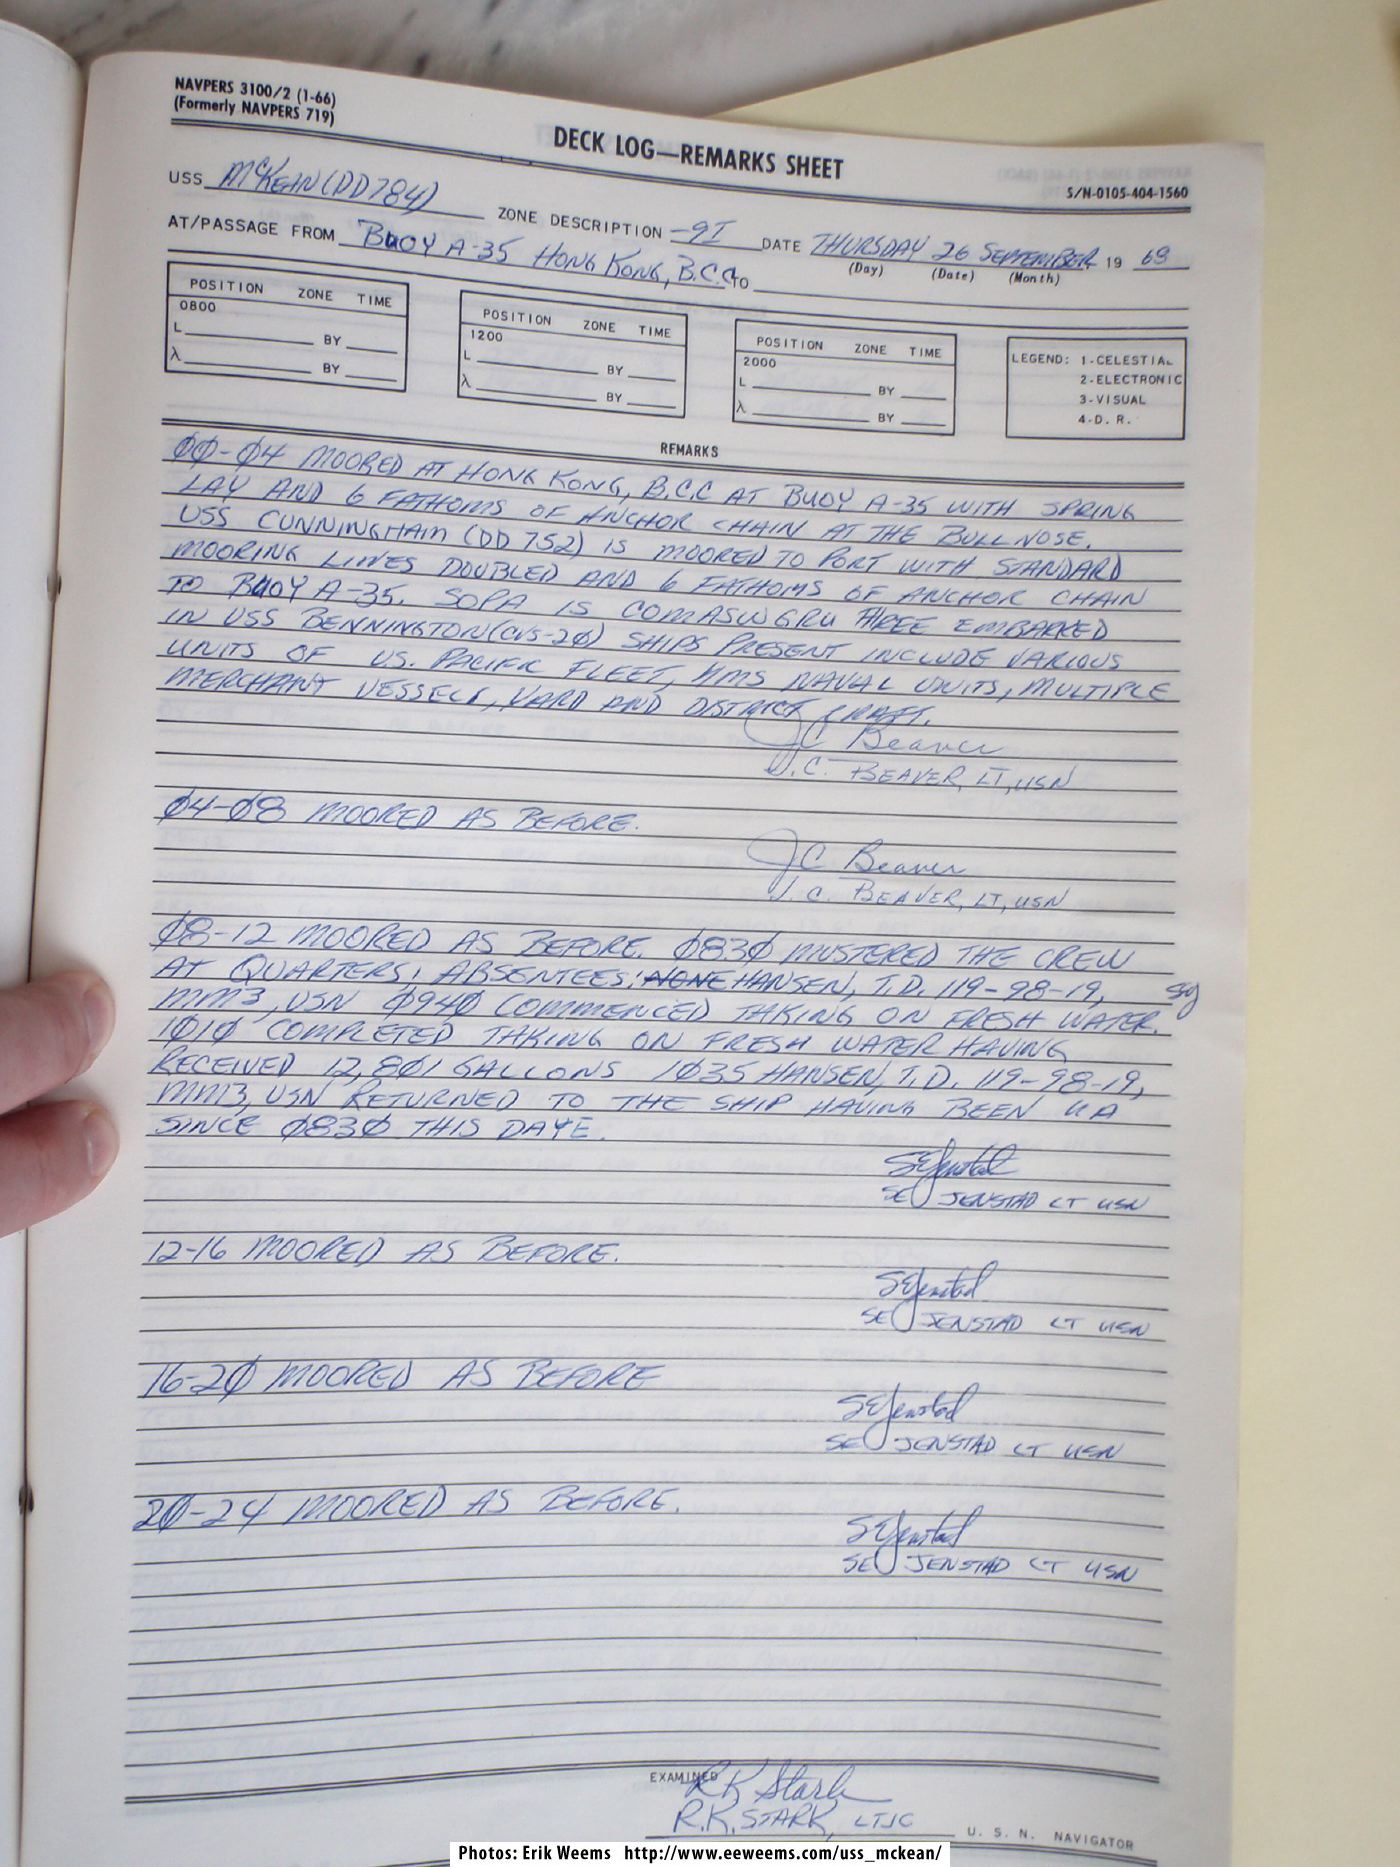 NAVPERS 3100/2 (1-66)
(Formerly NAVPERS 719)
DECK LOG—REMARKS SHEET
S/N-0105-404-1560
USS McKEAN (DD784) ZONE DESCRIPTION -9I DATE THURSDAY 26 SEPTEMBER, 19 68
(Day) (Date) (Month)
AT/PASSAGE FROM BUOY A-35 HONG KONG, B.C.C. TO
POSITION ZONE TIME
0800
L BY
λ BY
POSITION ZONE TIME
1200
L BY
λ BY
POSITION ZONE TIME
2000
L BY
λ BY
LEGEND: 1-CELESTIAL
2-ELECTRONIC
3-VISUAL
4-D. R.
REMARKS
00-04 MOORED AT HONG KONG, B.C.C AT BUOY A-35 WITH SPRING
LAY AND 6 FATHOMS OF ANCHOR CHAIN AT THE BULLNOSE.
USS CUNNINGHAM (DD 752) IS MOORED TO PORT WITH STANDARD
MOORING LINES DOUBLED AND 6 FATHOMS OF ANCHOR CHAIN
TO BUOY A-35. SOPA IS COMASWGRU THREE EMBARKED
IN USS BENNINGTON (CVS-20) SHIPS PRESENT INCLUDE VARIOUS
UNITS OF US. PACIFIC FLEET, HMS NAVAL UNITS, MULTIPLE
MERCHANT VESSELS, YARD AND DISTRICT CRAFT.
JC Beaver
J.C. BEAVER, LT, USN
04-08 MOORED AS BEFORE.
JC Beaver
J.C. BEAVER, LT, USN
08-12 MOORED AS BEFORE. 0830 MUSTERED THE CREW
AT QUARTERS; ABSENTEES: NONE HANSEN, T.D. 119-98-19, SEJ
MM3, USN 0940 COMMENCED TAKING ON FRESH WATER.
1010 COMPLETED TAKING ON FRESH WATER HAVING
RECEIVED 12,801 GALLONS 1035 HANSEN, T.D. 119-98-19,
MM3, USN RETURNED TO THE SHIP HAVING BEEN UA
SINCE 0830 THIS DAYE.
SEJenstad
SEJ JENSTAD LT USN
12-16 MOORED AS BEFORE.
SEJenstad
SE JENSTAD LT USN
16-20 MOORED AS BEFORE
SEJenstad
SE JENSTAD LT USN
20-24 MOORED AS BEFORE.
SEJenstad
SE JENSTAD LT USN
EXAMINED
R K Stark
R.K. STARK, LTJG
U. S. N. NAVIGATOR
Photos: Erik Weems http://www.eeweems.com/uss_mckean/